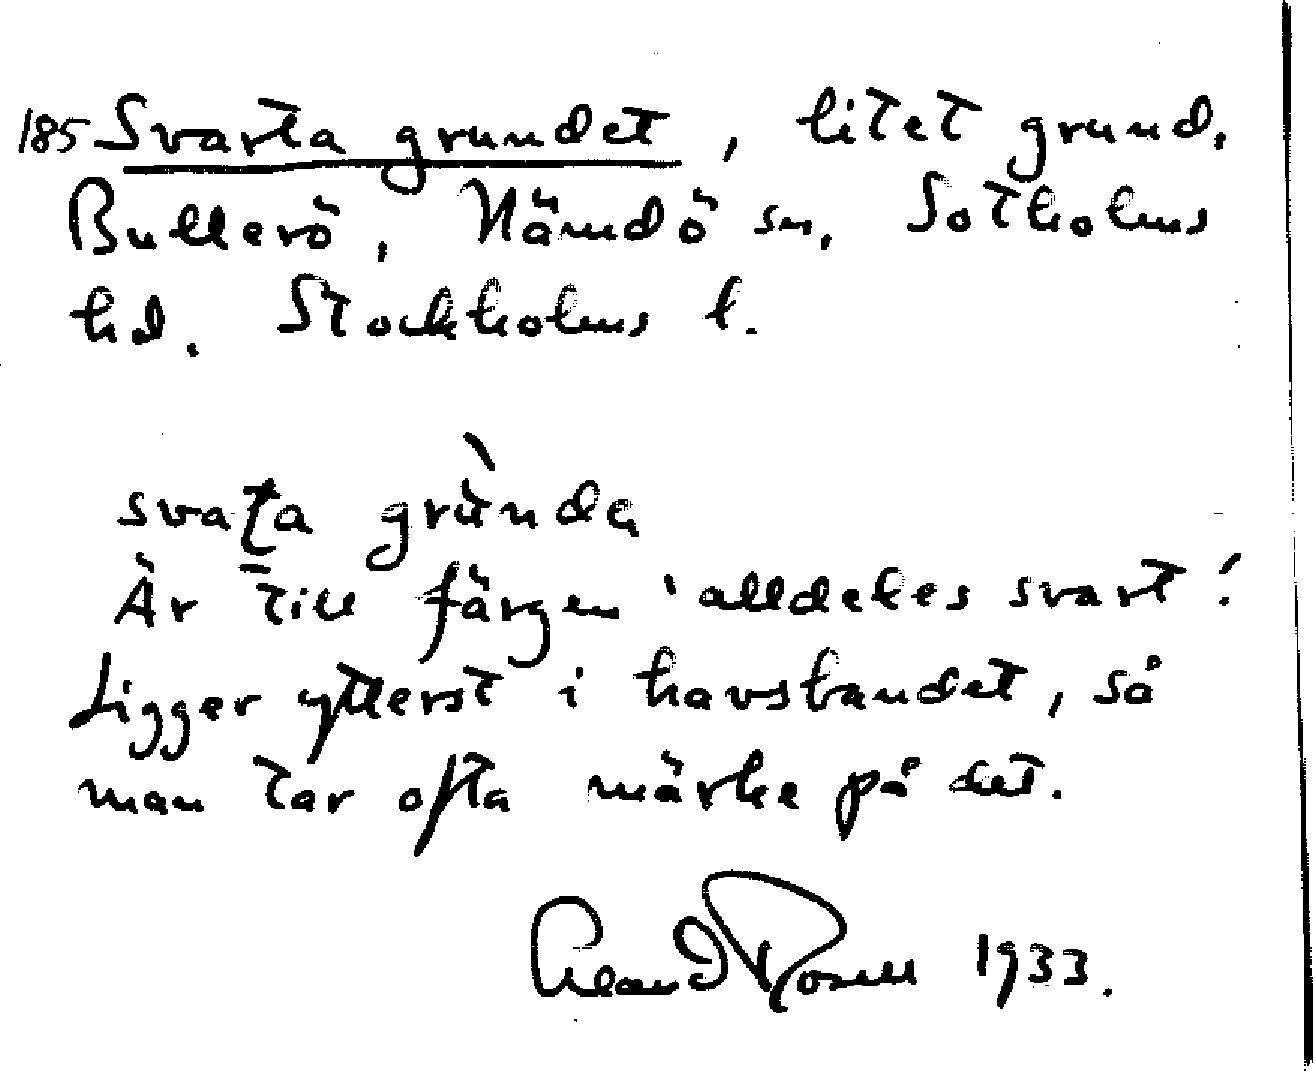 185 Svarta grundet, litet grund,
Bullerö, Nämdö sn, Sotholms
hd. Stockholms l.
svaṯa grùnda
Är till färgen 'alldeles svart'.
Ligger ytterst i havsbandet, så
man tar ofta märke på det.
1933.